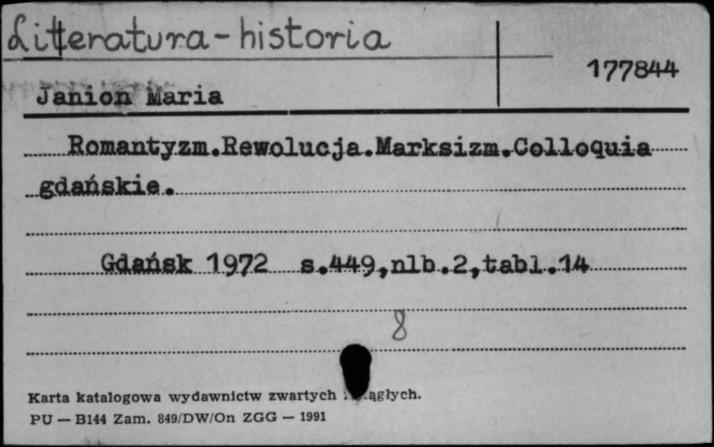 Litteratura-historia
177844
Janion Maria
Romantyzm.Rewolucja.Marksizm.Colloquia
gdańskie.
Gdańsk 1972 s.449,nlb.2,tabl.14
8
Karta katalogowa wydawnictw zwartych ągłych.
PU — B144 Zam. 849/DW/On ZGG — 1991